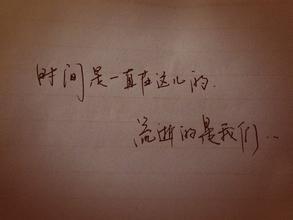 时间是一直在这儿的.
流逝的是我们..